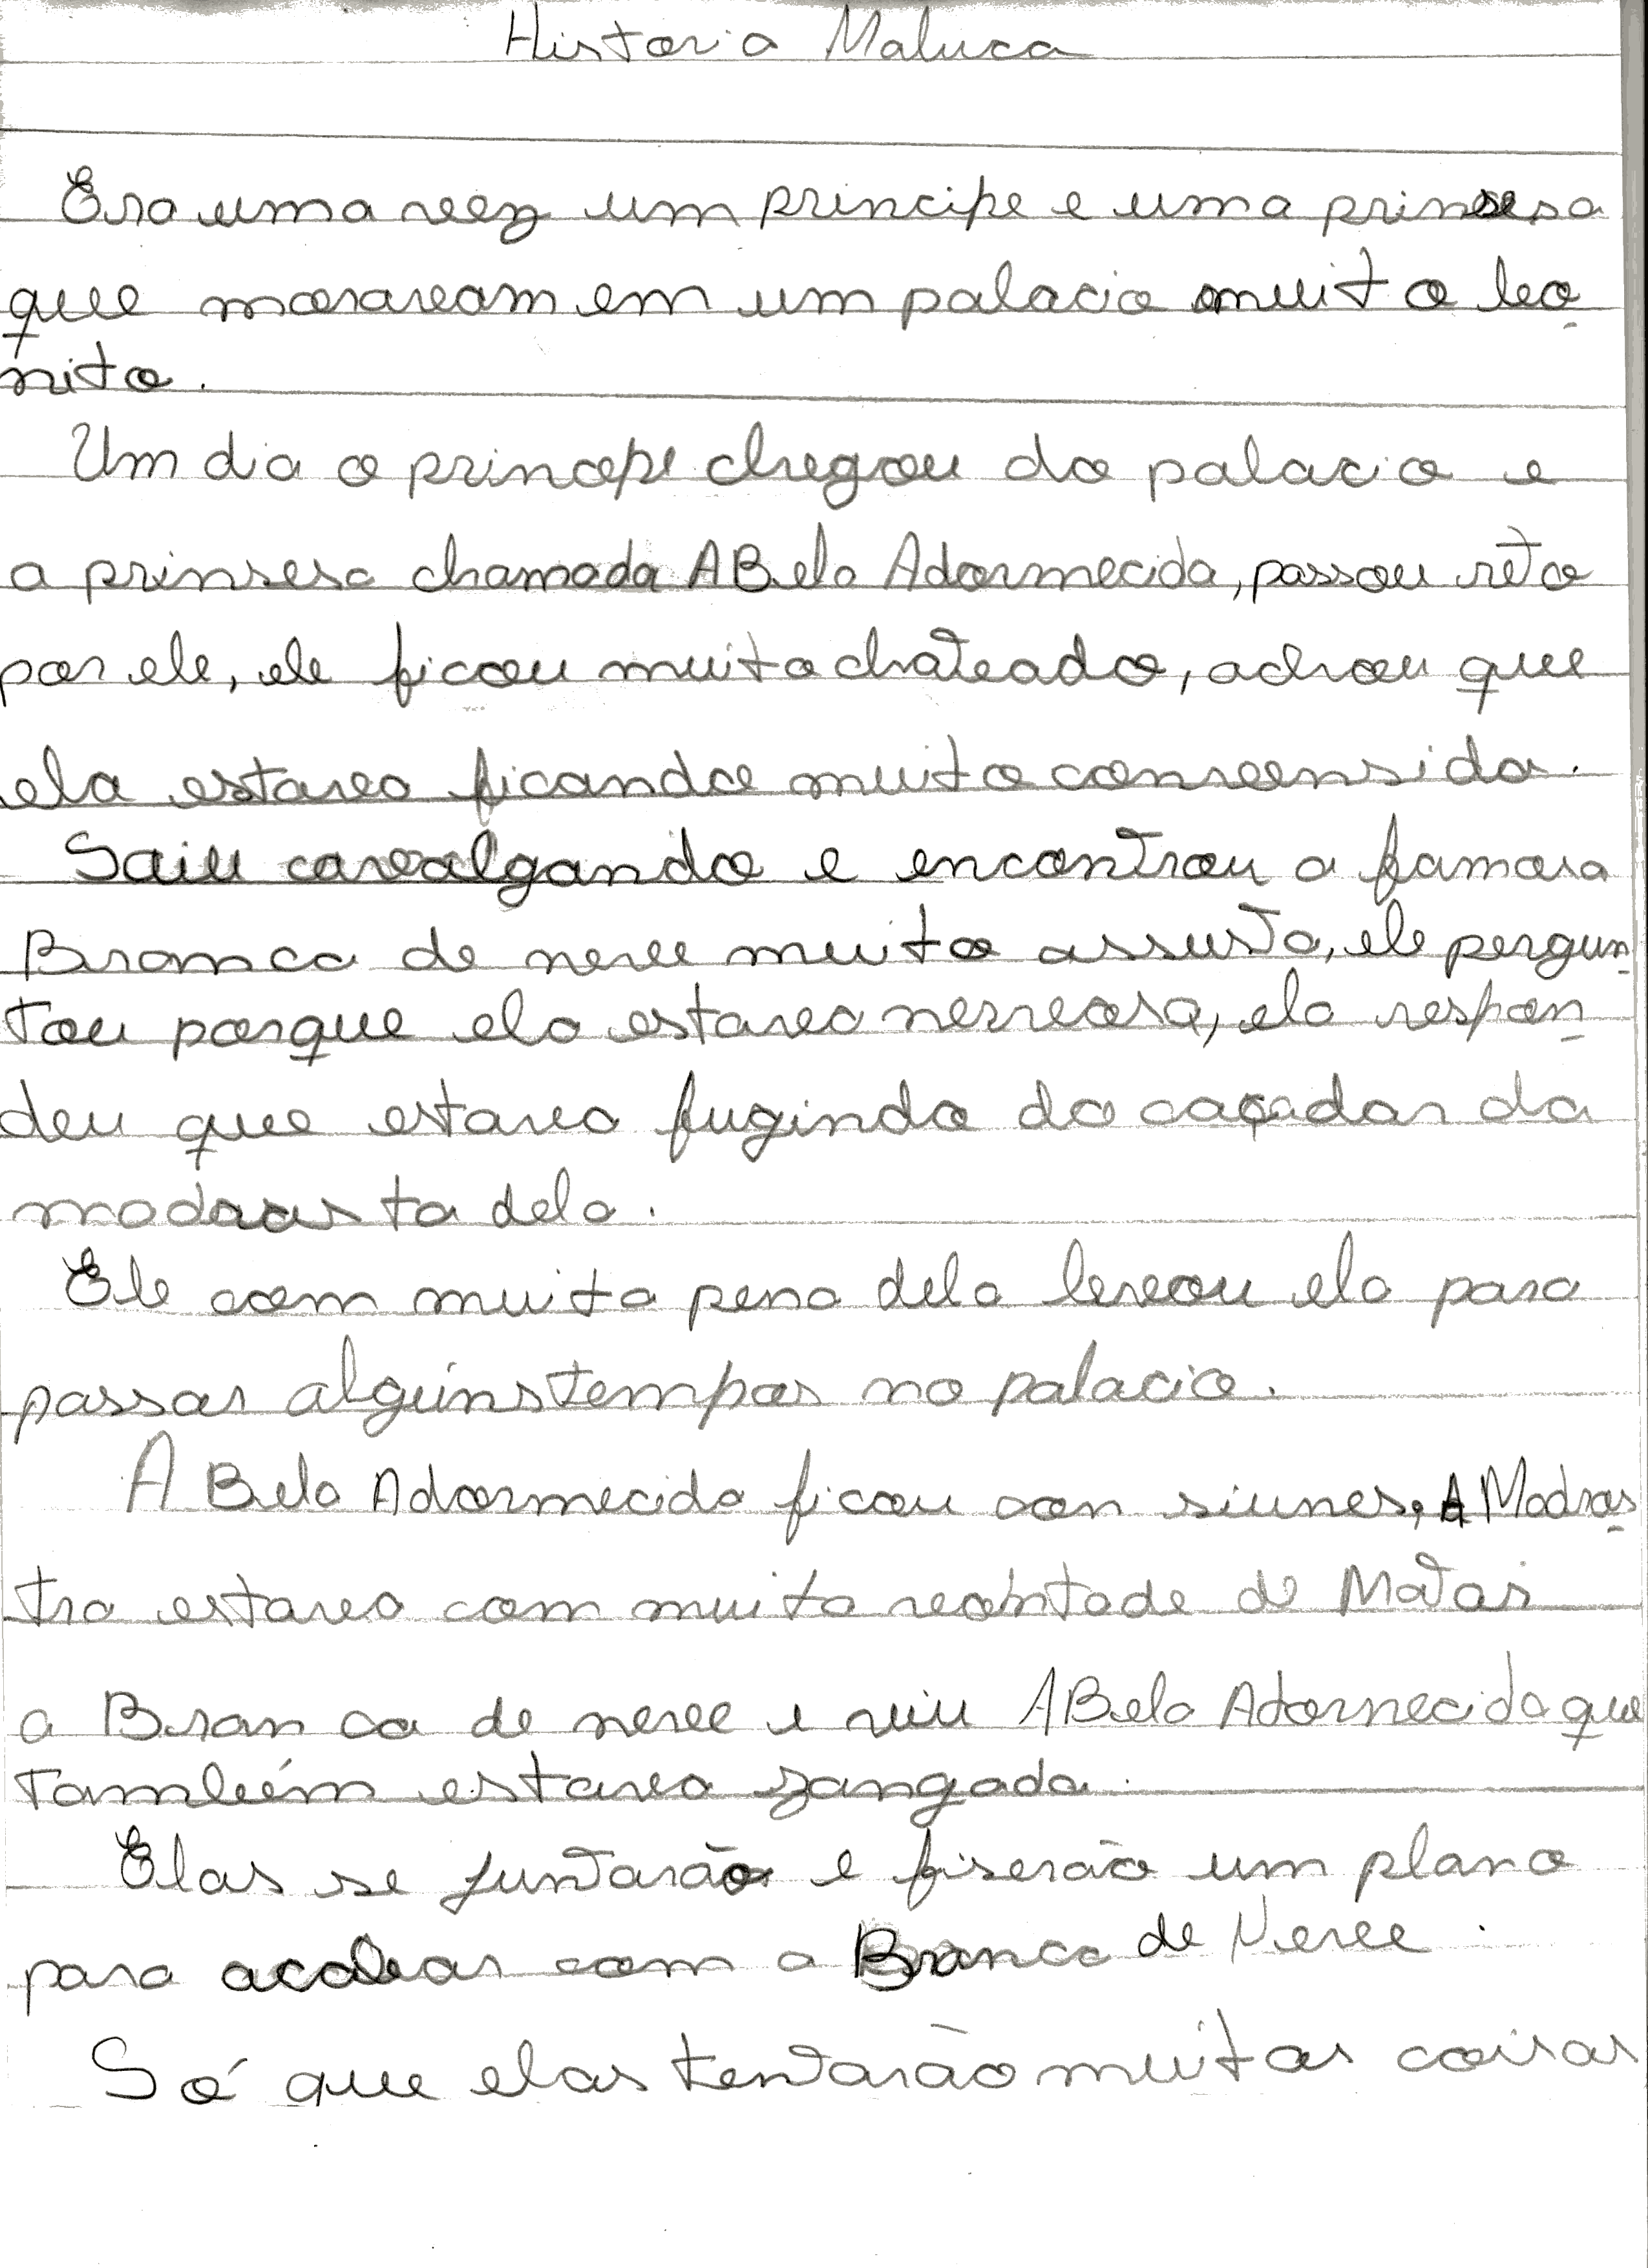 Historia Maluca
Era uma vez um principe e uma prinsesa
que moravam em um palacio muito bo
nito.
Um dia o princope chegou do palacio e
a prinsesa chamada A Bela Adormecida, passou reto
por ele, ele ficou muito chateado, achou que
ela estava ficando muito convensida.
Saiu cavalgando e encontrou a famosa
Bramca de neve muito assusta, ele pergun
tou porque ela estava nervosa, ela respon
deu que estava fugindo do caçador da
madrasta dela.
Ele com muita pena dela levou ela para
passar alguns tempos no palacio.
A Bela Adormecida ficou con siunes, A Madras
tra estava com muita vontade de Matar
a Bran ca de neve e viu A Bela Adormecida que
também estava zangada.
Elas se juntarão e fiserão um plano
para acabar com a Branca de Neve.
Só que elas tentarão muitas coisas